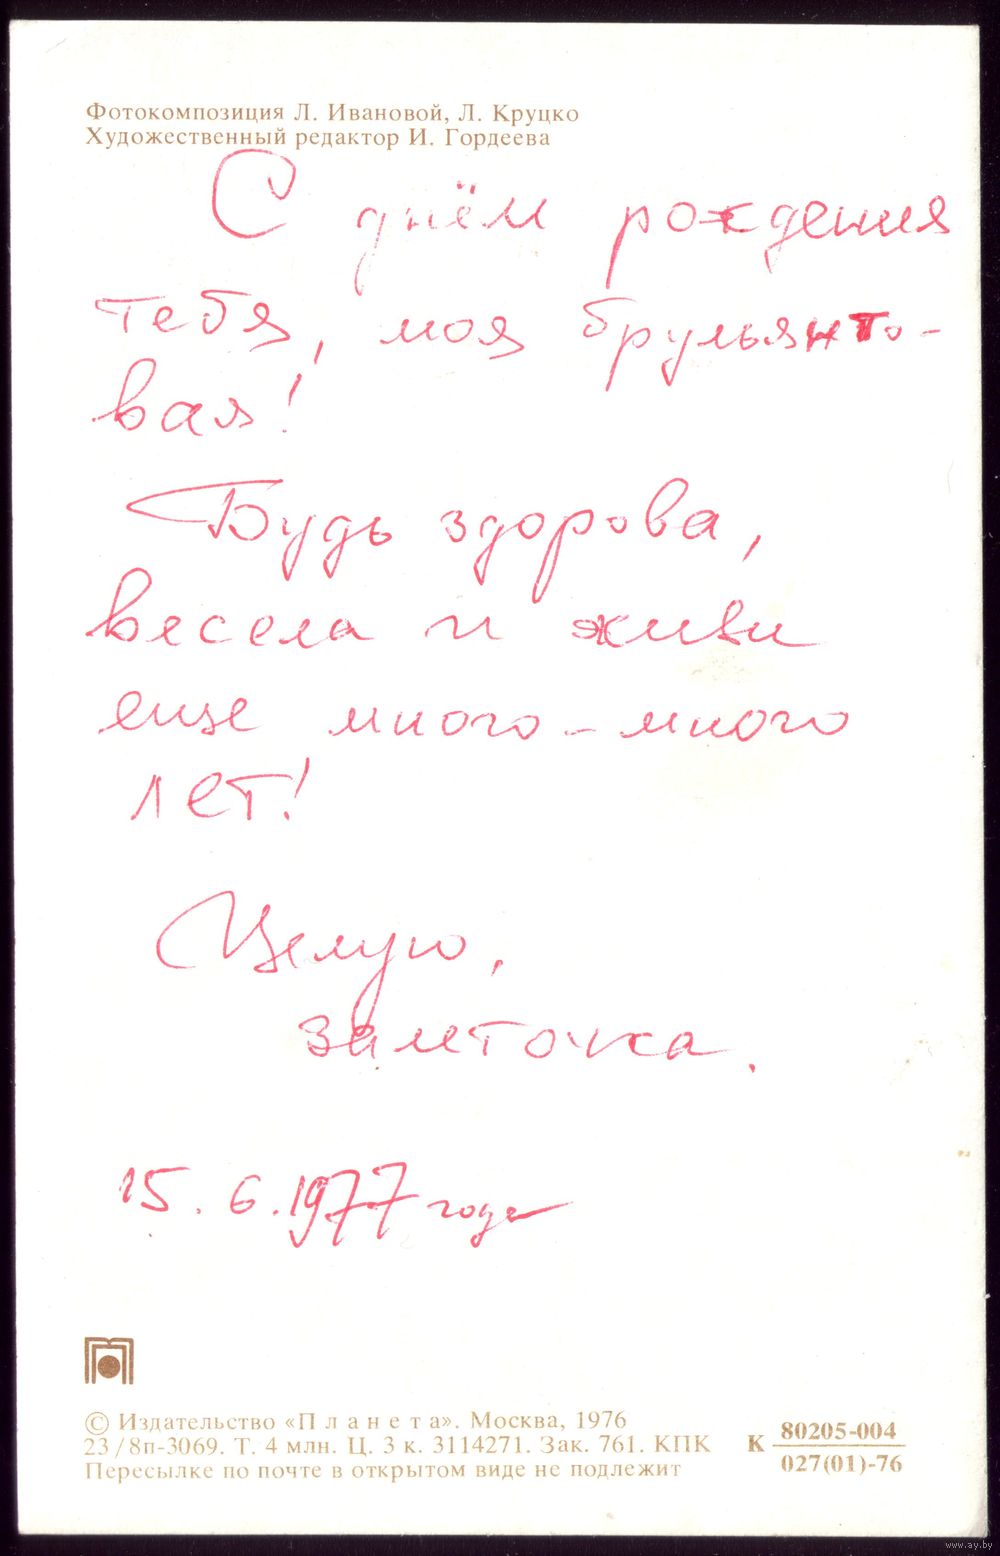 Фотокомпозиция Л. Ивановой, Л. Круцко
Художественный редактор И. Гордеева
С днём рождения
тебя, моя брульянто-
вая!
Будь здорова,
весела и живи
еще много-много
лет!
Целую,
заметочка.
15.6.1977 года
© Издательство «Планета». Москва, 1976
23/8п-3069. Т. 4 млн. Ц. 3 к. 3114271. Зак. 761. КПК
Пересылке по почте в открытом виде не подлежит
К 80205-004
027(01)-76
www.ay.by